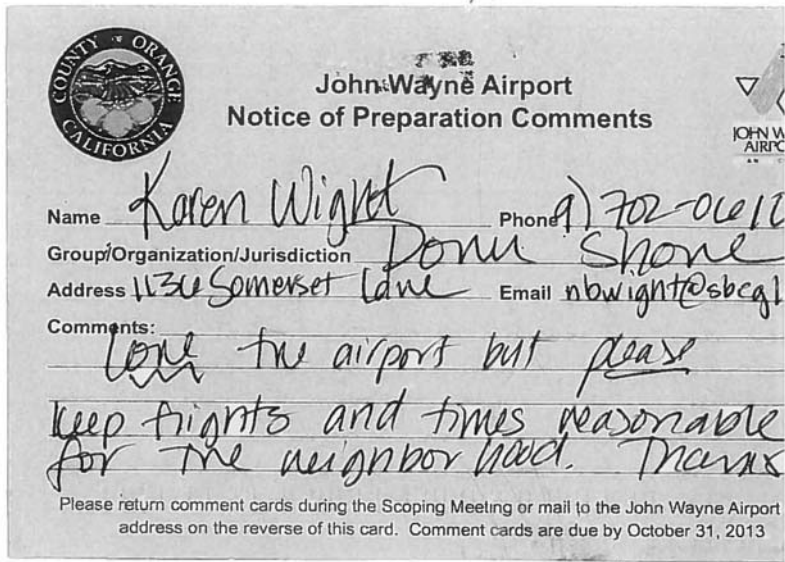 COUNTY OF ORANGE
CALIFORNIA
John Wayne Airport
Notice of Preparation Comments
JOHN W
AIRPO
Name Karen Wight Phone 9) 702-0610
Group/Organization/Jurisdiction Dover Shore
Address 1136 Somerset Lane Email nbwight@sbcgl
Comments:
Love the airport but please
keep flights and times reasonable
for the neighborhood. Thanks
Please return comment cards during the Scoping Meeting or mail to the John Wayne Airport
address on the reverse of this card. Comment cards are due by October 31, 2013